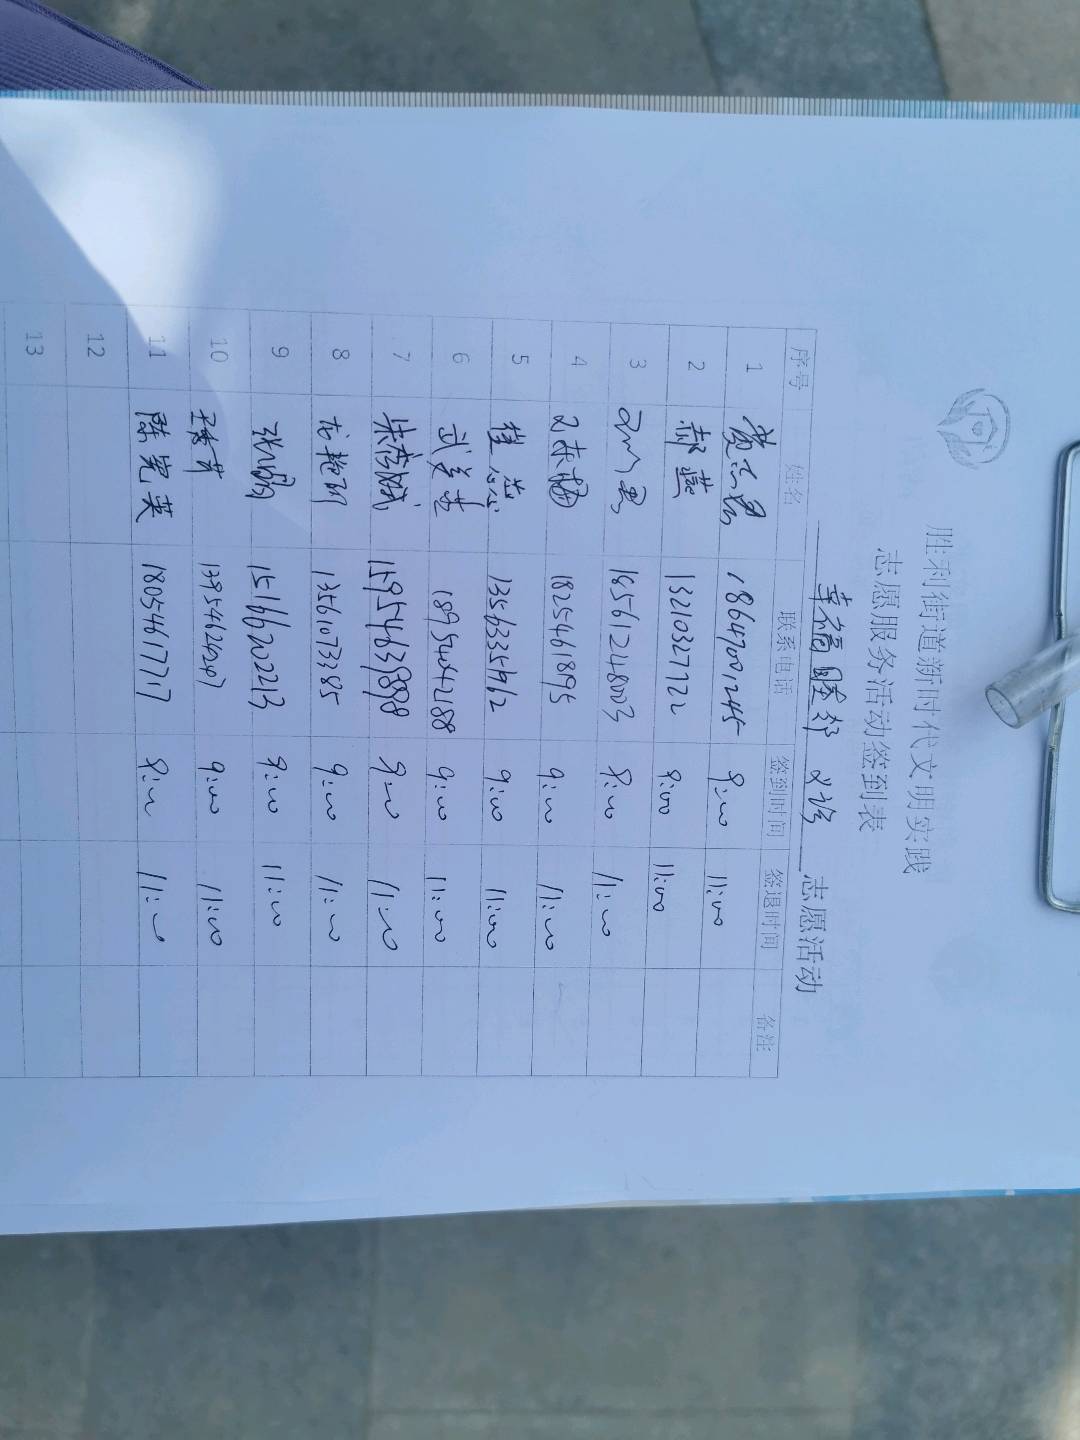 胜利街道新时代文明实践
志愿服务活动签到表
幸福睦邻 义诊 志愿活动
序号 姓名 联系电话 签到时间 签退时间 备注
1 18647001245 9:00 11:00
2 郝燕 13210327122 9:00 11:00
3 18561248003 9:00 11:00
4 1825461895 9:00 11:00
5 崔总 13563357962 9:00 11:00
6 武美芸 18954642188 9:00 11:00
7 15954639898 9:00 11:00
8 13561073385 9:00 11:00
9 15166202213 9:00 11:00
10 13954624207 9:00 11:00
11 陈宪英 18054617717 9:00 11:00
12
13